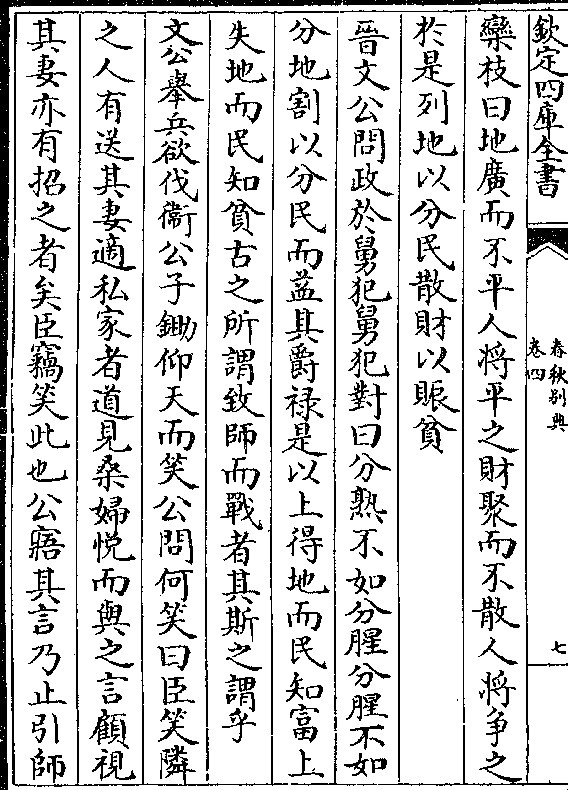 欽定四庫全書
春秋别典
卷四
七
欒枝曰地廣而不平人將平之財聚而不散人將争之
於是列地以分民散財以賑貧
晉文公問政於舅犯舅犯對曰分熟不如分腥分腥不如
分地割以分民而益其爵禄是以上得地而民知富上
失地而民知貧古之所謂致師而戰者其斯之謂乎
文公舉兵欲伐衞公子鋤仰天而笑公問何笑曰臣笑隣
之人有送其妻適私家者道見桑婦悦而與之言顧視
其妻亦有招之者矣臣竊笑此也公寤其言乃止引師